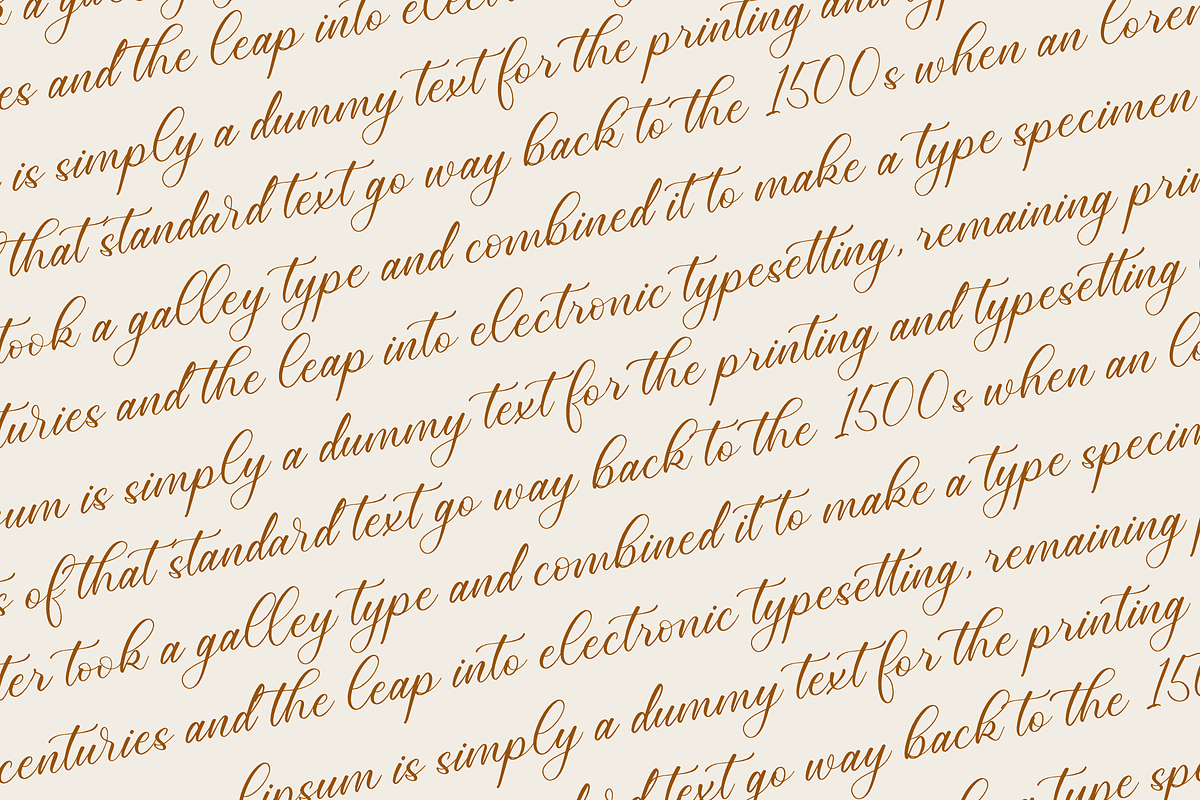 a
es and the leap into
is simply a dummy text for the printing and
that standard text go way back to the 1500s when an lorem
took a galley type and combined it to make a type specimen
turies and the leap into electronic typesetting, remaining prin
sum is simply a dummy text for the printing and typesetting
s of that standard text go way back to the 1500s when an lo
ter took a galley type and combined it to make a type specim
centuries and the leap into electronic typesetting, remaining
lipsum is simply a dummy text for the printing
rd text go way back to the 150
a type spe